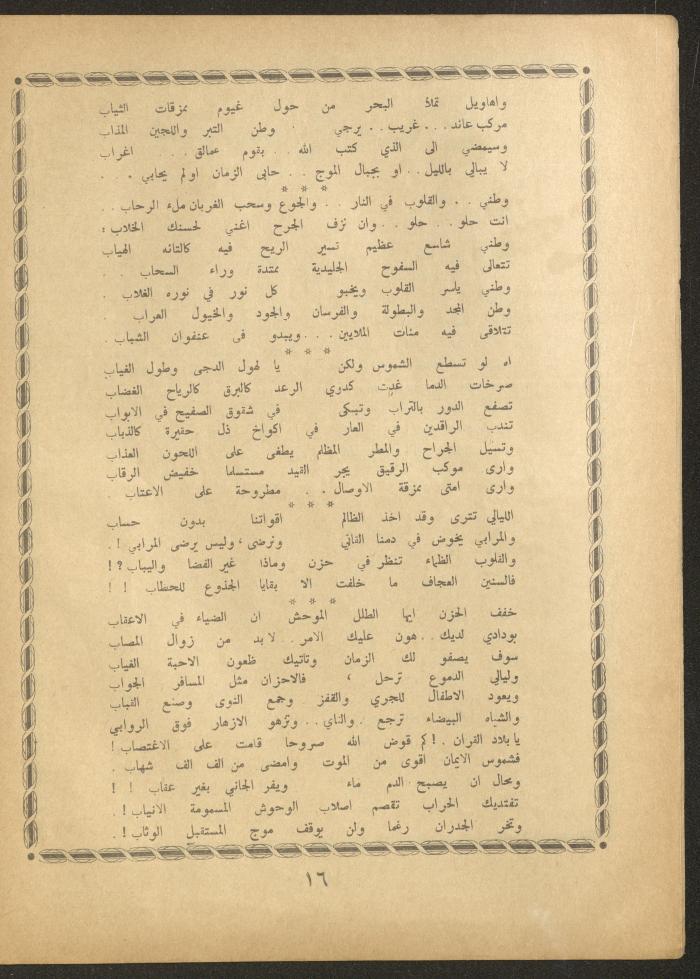 واهاويل تملأ البحر من حول غيوم بمزقات الثياب
مركب عاند . . . غريب . . يرجي وطن التبر واللجين المذاب
وسيمضي الى الذي كتب الله . . بقوم عمالق . . . اغراب
لا يبالي بالليل . . او بجبال الموج . . حابى الزمان اولم يحابي . .
* * *
وطني . . والقلوب في النار . . والجوع وسحب الغربان ملء الرحاب . .
انت حلو . . حلو . . وان نزف الجرح اغني لحسنك الخلاب :
وطني شاسع عظيم تسير الريح فيه كالتائه الهياب
تتعالى فيه السفوح الجليدية ممتدة وراء السحاب . .
وطني ياسر القلوب ويخبو كل نور في نوره الغلاب .
وطن المجد والبطولة والفرسان والجود والخيول العراب .
تتلاقى فيه مئات الملايين . . . ويبدو فى عنفوان الشباب .
* * *
اه لو تسطع الشموس ولكن يا لهول الدجى وطول الغياب
صرخات الدما غدت كدوي الرعد كالبرق كالرياح الغضاب
تصفع الدور بالتراب وتبكى في شقوق الصفيح في الابواب
تندب الراقدين في العار في اكواخ ذل حقيرة كالذباب
وتسيل الجراح والمطر المظلم يطغى على اللحون العذاب
وارى موكب الرقيق يجر القيد مستسلما خفيض الرقاب
وارى امتى ممزقة الاوصال . . مطروحة على الاعتاب .
* * *
الليالي تترى وقد اخذ الظالم اقواتنا بدون حساب
والمرابي يخوض في دمنا القاني ونرضى ، وليس يرضى المرابي ! .
والقلوب الظماء تنظر في حزن وماذا غير الفضا واليباب ? !
فالسنين العجاف ما خلفت الا بقايا الجذوع للحطاب ! !
* * *
خفف الحزن ايها الطلل الموحش ان الضياء في الاعقاب
بودادي لديك . . هون عليك الامر . . لا بد من زوال المصاب
سوف يصفو لك الزمان وتاتيك ظعون الاحبة الغياب
وليالي الدموع ترحل ، فالاحزان مثل المسافر الجواب
ويعود الاطفال للجري والقفز وجمع النوى وصنع القباب
والشياه البيضاء ترجع . والناي . . وتزهو الازهار فوق الروابي
يا بلاد القران . ! كم قوض الله صروحا قامت على الاغتصاب !
فشموس الايمان اقوى من الموت وامضى من الف الف شهاب .
ومحال ان يصبح الدم ماء ويفر الجانى بغير عقاب ! !
تفتديك الحراب تقصم اصلاب الوحوش المسمومة الانياب ! .
وتخر الجدران رغما ولن يوقف موج المستقبل الوثاب ! .
١٦